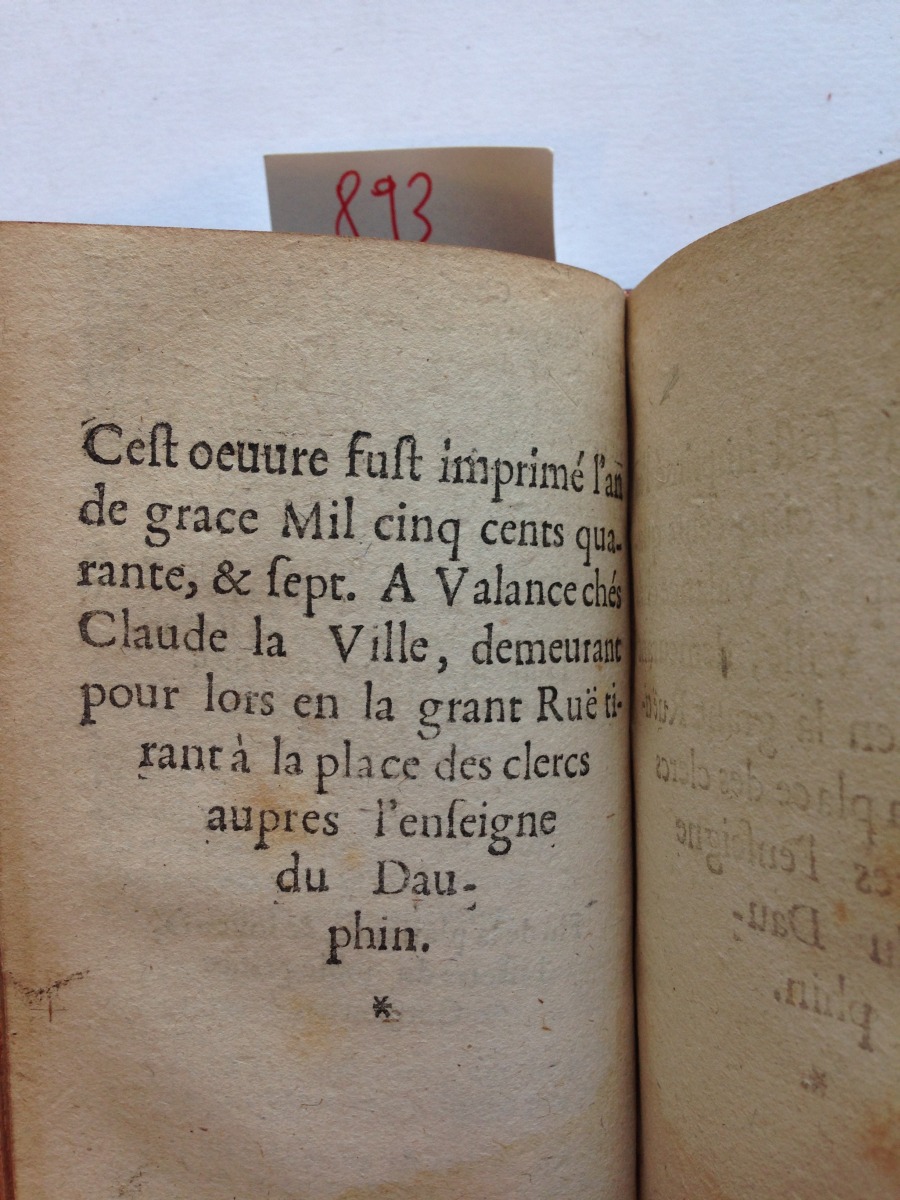 893
Ceſt oeuure fuſt imprimé l'an
de grace Mil cinq cents qua-
rante, & ſept. A Valance chés
Claude la Ville, demeurant
pour lors en la grant Ruë ti-
rant à la place des clercs
aupres l'enſeigne
du Dau-
phin.
*